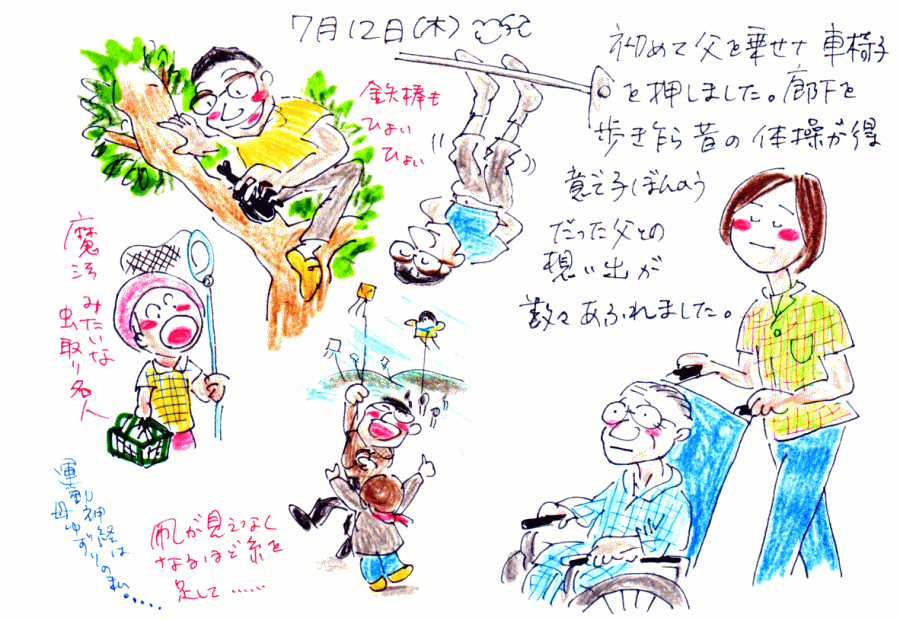 7月12日(木)
初めて父を乗せて車椅子
を押しました。廊下を
歩き乍ら昔の体操が得
意で子ぼんのう
だった父との
想い出が
数々あふれました。
鉄棒も
ひょい
ひょい
魔法みたいな
虫取り名人
凧が見えなく
なるほど糸を
足して……
運動神経は
母ゆずりの私……